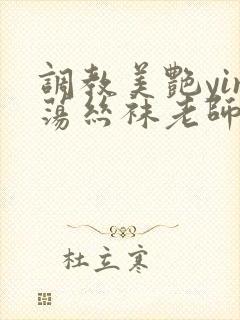 調教美艷yin
蕩絲袜老師
杜立寒